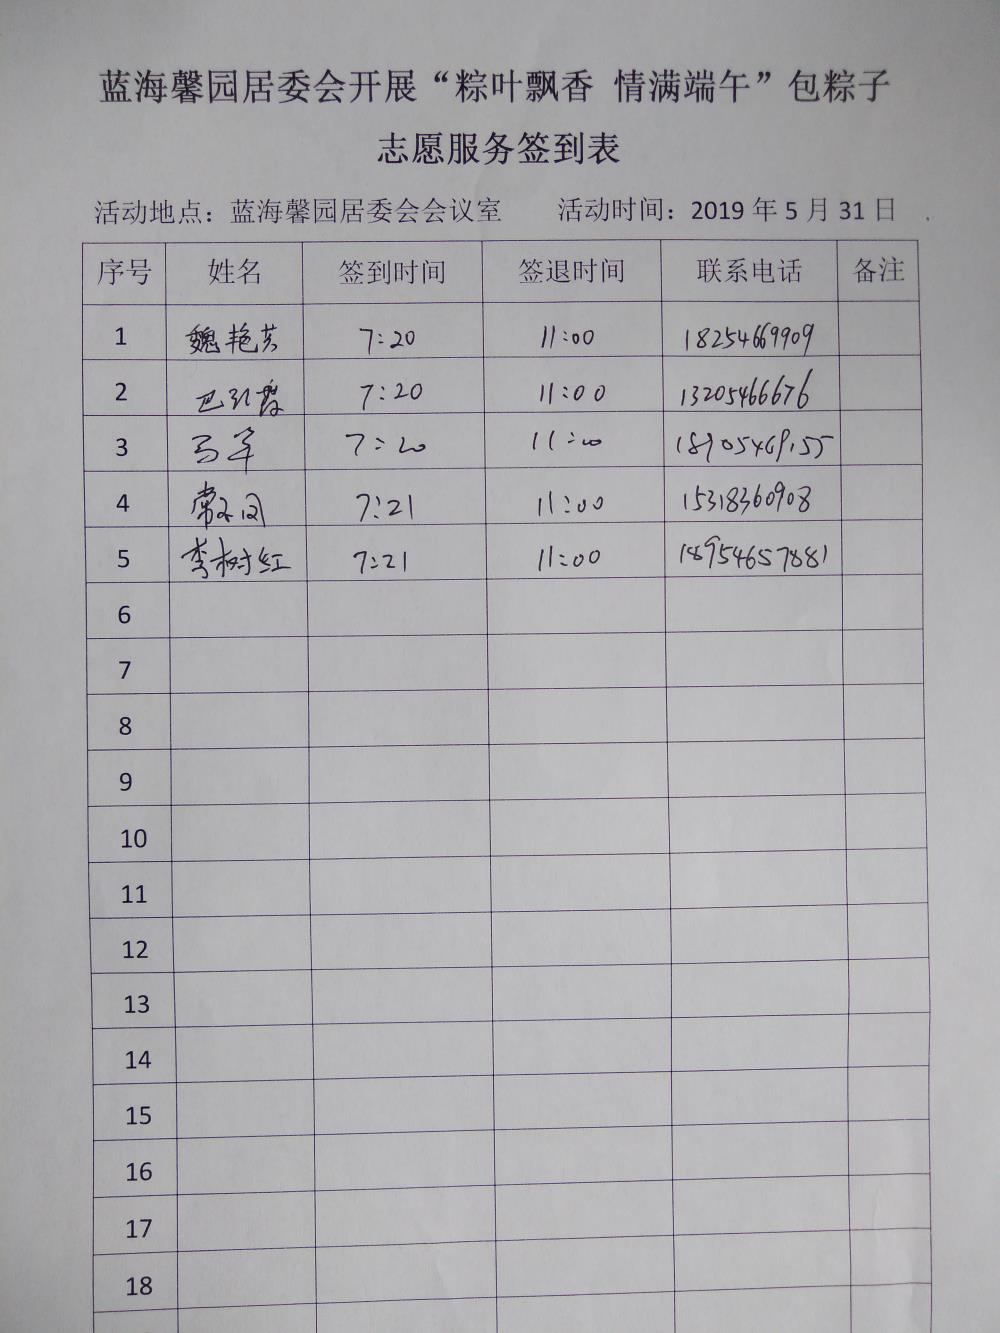 蓝海馨园居委会开展“粽叶飘香 情满端午”包粽子
志愿服务签到表
活动地点：蓝海馨园居委会会议室 活动时间：2019 年 5 月 31 日
序号 姓名 签到时间 签退时间 联系电话 备注
1 魏艳芸 7:20 11:00 18254669909
2 7:20 11:00 13205466676
3 7:20 11:00
4 7:21 11:00 15318360908
5 李树红 7:21 11:00 18954657881
6
7
8
9
10
11
12
13
14
15
16
17
18